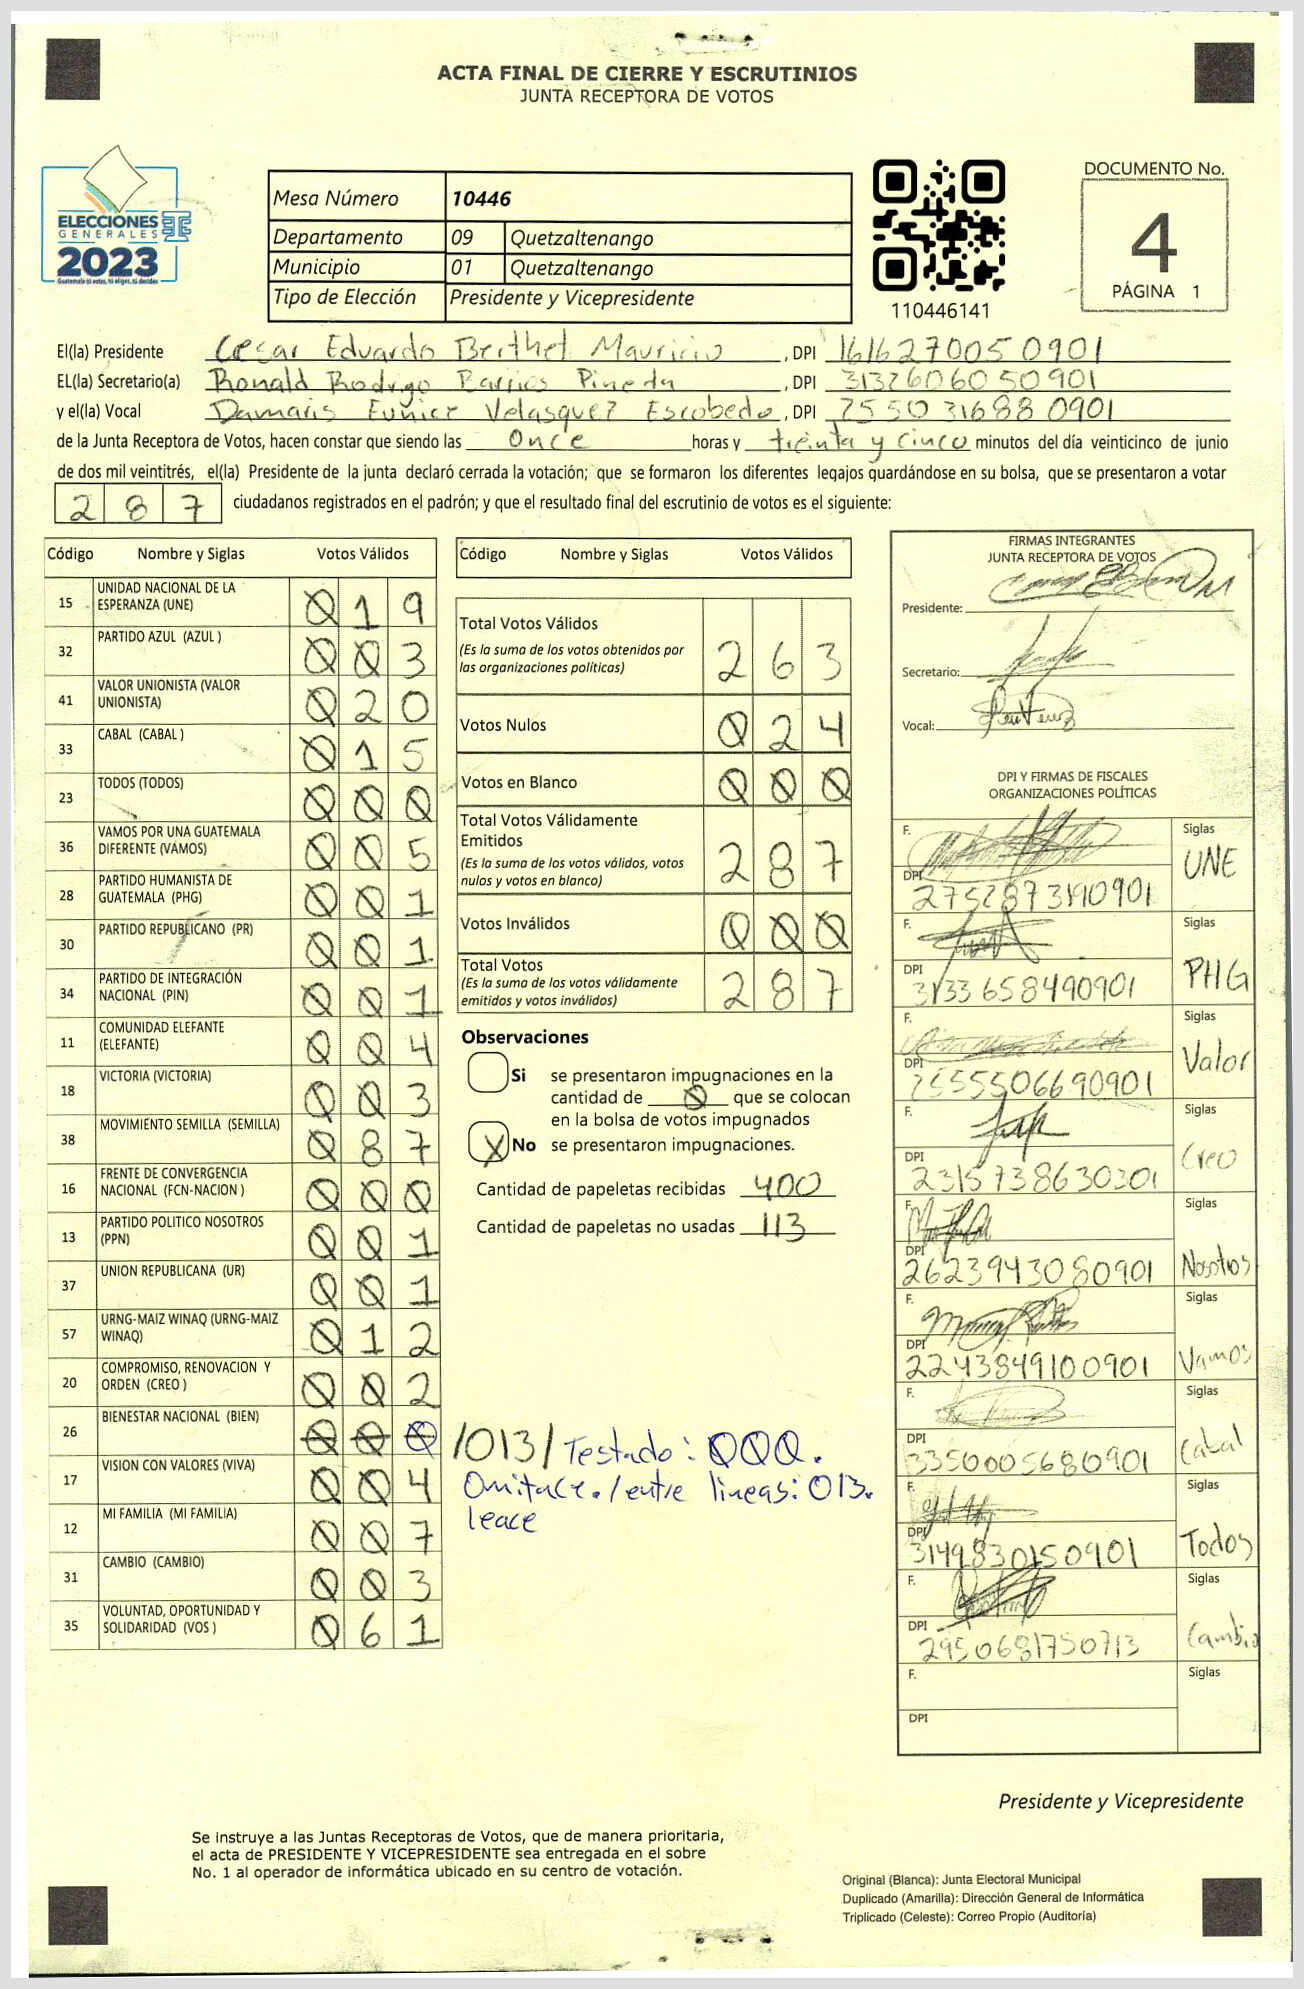 ACTA FINAL DE CIERRE Y ESCRUTINIOS
JUNTA RECEPTORA DE VOTOS
ELECCIONES
GENERALES
2023
Guatemala tú votas, tú eliges, tú decides
Mesa Número 10446
Departamento 09 Quetzaltenango
Municipio 01 Quetzaltenango
Tipo de Elección Presidente y Vicepresidente
110446141
DOCUMENTO No.
4
PÁGINA 1
El(la) Presidente Cesar Eduardo Berthet Mauricio, DPI 1616270050901
EL(la) Secretario(a) Ronald Rodrigo Barrios Pineda, DPI 3132606050901
y el(la) Vocal Damaris Eunice Velasquez Escobedo, DPI 2550316880901
de la Junta Receptora de Votos, hacen constar que siendo las Once horas y treinta y cinco minutos del día veinticinco de junio
de dos mil veintitrés, el(la) Presidente de la junta declaró cerrada la votación; que se formaron los diferentes legajos guardándose en su bolsa, que se presentaron a votar
287 ciudadanos registrados en el padrón; y que el resultado final del escrutinio de votos es el siguiente:
Código Nombre y Siglas Votos Válidos
15 UNIDAD NACIONAL DE LA ESPERANZA (UNE) 019
32 PARTIDO AZUL (AZUL ) 003
41 VALOR UNIONISTA (VALOR UNIONISTA) 020
33 CABAL (CABAL ) 015
23 TODOS (TODOS) 000
36 VAMOS POR UNA GUATEMALA DIFERENTE (VAMOS) 005
28 PARTIDO HUMANISTA DE GUATEMALA (PHG) 001
30 PARTIDO REPUBLICANO (PR) 001
34 PARTIDO DE INTEGRACIÓN NACIONAL (PIN) 001
11 COMUNIDAD ELEFANTE (ELEFANTE) 004
18 VICTORIA (VICTORIA) 003
38 MOVIMIENTO SEMILLA (SEMILLA) 087
16 FRENTE DE CONVERGENCIA NACIONAL (FCN-NACION ) 000
13 PARTIDO POLITICO NOSOTROS (PPN) 001
37 UNION REPUBLICANA (UR) 001
57 URNG-MAIZ WINAQ (URNG-MAIZ WINAQ) 012
20 COMPROMISO, RENOVACION Y ORDEN (CREO ) 002
26 BIENESTAR NACIONAL (BIEN) 000 /013/ Testado: 000.
Omitace./entre lineas: 013.
leace
17 VISION CON VALORES (VIVA) 004
12 MI FAMILIA (MI FAMILIA) 007
31 CAMBIO (CAMBIO) 003
35 VOLUNTAD, OPORTUNIDAD Y SOLIDARIDAD (VOS ) 061
Código Nombre y Siglas Votos Válidos
Total Votos Válidos 263
(Es la suma de los votos obtenidos por
las organizaciones políticas)
Votos Nulos 024
Votos en Blanco 000
Total Votos Válidamente
Emitidos 287
(Es la suma de los votos válidos, votos
nulos y votos en blanco)
Votos Inválidos 000
Total Votos 287
(Es la suma de los votos válidamente
emitidos y votos inválidos)
Observaciones
Si se presentaron impugnaciones en la
cantidad de 0 que se colocan
en la bolsa de votos impugnados
X No se presentaron impugnaciones.
Cantidad de papeletas recibidas 400
Cantidad de papeletas no usadas 113
FIRMAS INTEGRANTES
JUNTA RECEPTORA DE VOTOS
Presidente:
Secretario:
Vocal:
DPI Y FIRMAS DE FISCALES
ORGANIZACIONES POLÍTICAS
F. Siglas
UNE
DPI
F. Siglas
PHG
DPI 3133658490901
F. Siglas
Valor
DPI 2555506690901
F. Siglas
Creo
DPI 2315738630301
F. Siglas
Nosotros
DPI 2623943080901
F. Siglas
Vamos
DPI 2243849100901
F. Siglas
Cabal
DPI 3350005680901
F. Siglas
Todos
DPI 3149830150901
F. Siglas
Cambio
DPI 2950681750713
F. Siglas
DPI
Presidente y Vicepresidente
Se instruye a las Juntas Receptoras de Votos, que de manera prioritaria,
el acta de PRESIDENTE Y VICEPRESIDENTE sea entregada en el sobre
No. 1 al operador de informática ubicado en su centro de votación.
Original (Blanca): Junta Electoral Municipal
Duplicado (Amarilla): Dirección General de Informática
Triplicado (Celeste): Correo Propio (Auditoría)